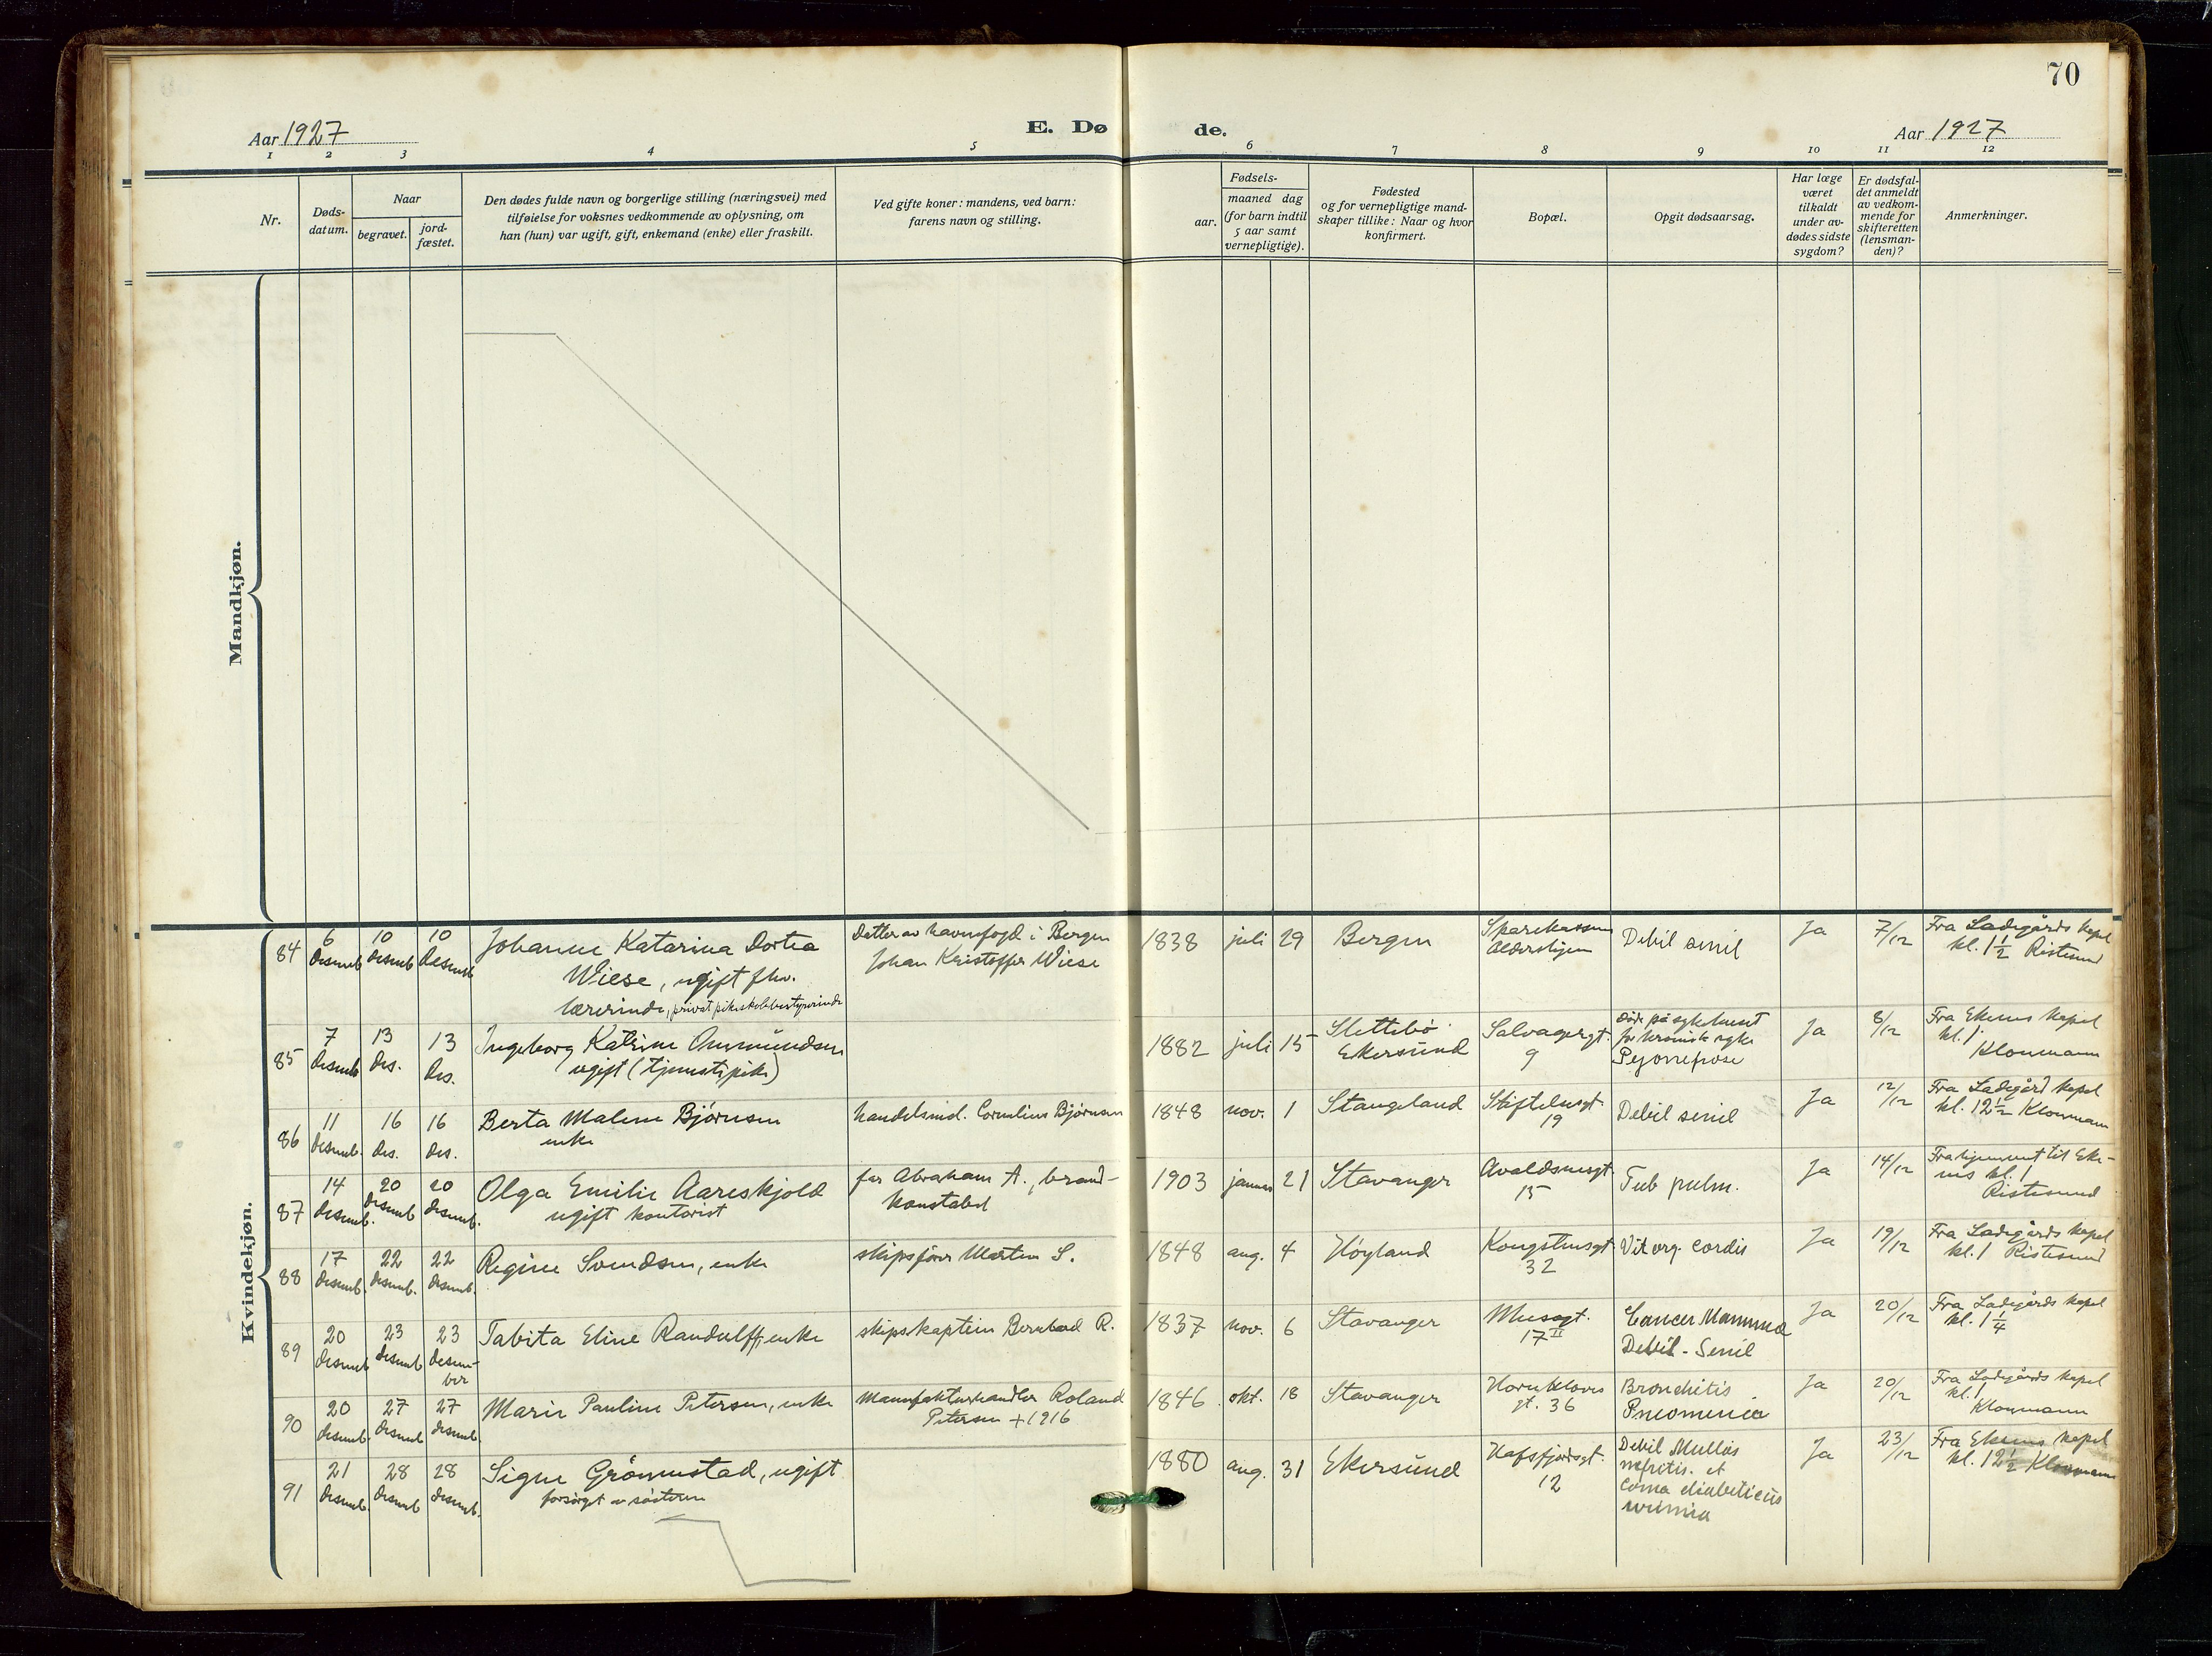 70
Aar 1927
E. Dø de.
Aar 1927
1 2 3 4 5 6 7 8 9 10 11 12
Nr.
Døds-
datum.
Naar
begravet.
jord-
fæstet.
Den dødes fulde navn og borgerlige stilling (næringsvei) med
tilføielse for voksnes vedkommende av oplysning, om
han (hun) var ugift, gift, enkemand (enke) eller fraskilt.
Ved gifte koner: mandens, ved barn:
farens navn og stilling.
Fødsels-
aar.
maaned dag
(for barn indtil
5 aar samt
vernepligtige).
Fødested
og for vernepligtige mand-
skaper tillike: Naar og hvor
konfirmert.
Bopæl.
Opgit dødsaarsag.
Har læge
været
tilkaldt
under av-
dødes sidste
sygdom?
Er dødsfal-
det anmeldt
av vedkom-
mende for
skifteretten
(lensman-
den)?
Anmerkninger.
Mandkjøn.
Kvindekjøn.
84
6
Desemb
10
Desemb
10
Desemb
Johanne Katarina Dortea
Wiese, ugift fhv.
lærerinde, privat pikeskolebestyrerinde
Datter av havnefogd i Bergen
Johan Kristoffer Wiese
1838 juli 29 Bergen
Sparekassens
Aldershjem
Debil senil
Ja 7/12
Fra Ladegårds kapel
kl. 1 1/2 Ristesund
85
7
Desemb
13
Des.
13
Des.
Ingeborg Katrine Ommundsen
ugift (tjenestepike)
1882 juli 15
Slettebø
Ekersund
Salvagergt.
9
Døde på sykehuset
for kroniske syke
Ja 8/12
Fra Ekenes kapel
kl. 1
Klonmann
86
11
Desemb.
16
Des.
16
Des.
Berta Malene Bjørnsen
enke
handelsmd. Cornelius Bjørnsen
1848 nov. 1 Stangeland
Stiftelsesgt.
19
Debil senil
Ja 12/12
Fra Ladegård kapel
kl. 12 1/2 Klonmann
87
14
Desemb.
20
Desemb.
20
Desemb.
Olga Emilie Aareskjold
ugift kontorist
far Abraham A., brand-
konstabel
1903 januar 21 Stavanger
Avaldsnesgt.
15
Tub pulm.
Ja 14/12
Fra hjemmet til Eke-
nes kl. 1
Ristesund
88
17
Desemb.
22
Desemb.
22
Desemb.
Regine Svendsen, enke
skipsfører Martin S.
1848 aug. 4 Høyland
Kongstensgt.
32
Vit org. Cordis
Ja 19/12
Fra Ladegårds kapel
kl. 1 Ristesund
89
20
Desemb
23
Desemb
23
Desem-
ber
Tabita Eline Randulff, enke
skipskaptein Bernhard R.
1837 nov. 6 Stavanger
Musegt.
17 II
Cancer Mamma
Debil - Senil
Ja 20/12
Fra Ladegårds kapel
kl. 1 1/4
90
20
Desemb.
27
Desemb
27
Desemb.
Marie Pauline Petersen, enke
Manufakturhandler Roland
Petersen + 1916
1846 okt. 18 Stavanger
Hornkloves
gt. 36
Bronchitis
Pneomenia
Ja 20/12
Fra Ladegårds kapel
kl. 1
Klonmann
91
21
Desemb.
28
Desemb
28
Desemb.
Signe Grønnestad, ugift
forsørget av søsteren
1880 aug. 31 Ekersund
Hafsfjordsgt.
12
Debil Mullas
nefritis. et
Coma diabeticus
uremia
Ja 23/12
Fra Ekenes kapel
kl. 12 1/2 Klonmann